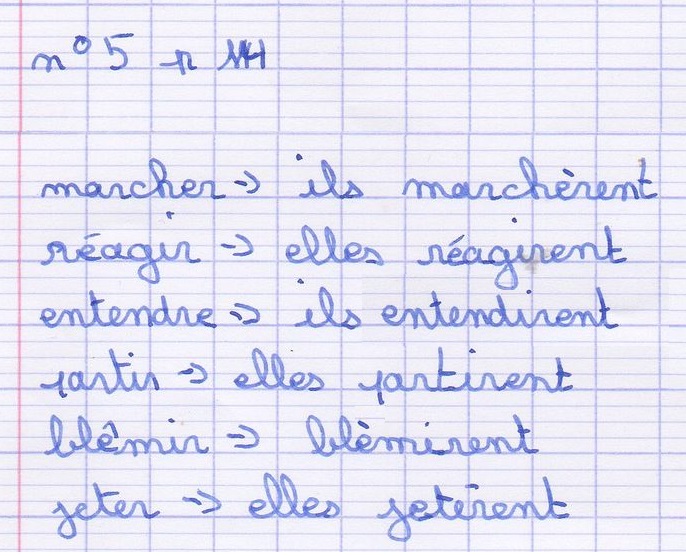 n° 5 p
marcher → ils marchèrent
réagir → elles réagirent
entendre → ils entendirent
partir → elles partirent
blêmir → blèmirent
jeter → elles jetèrent